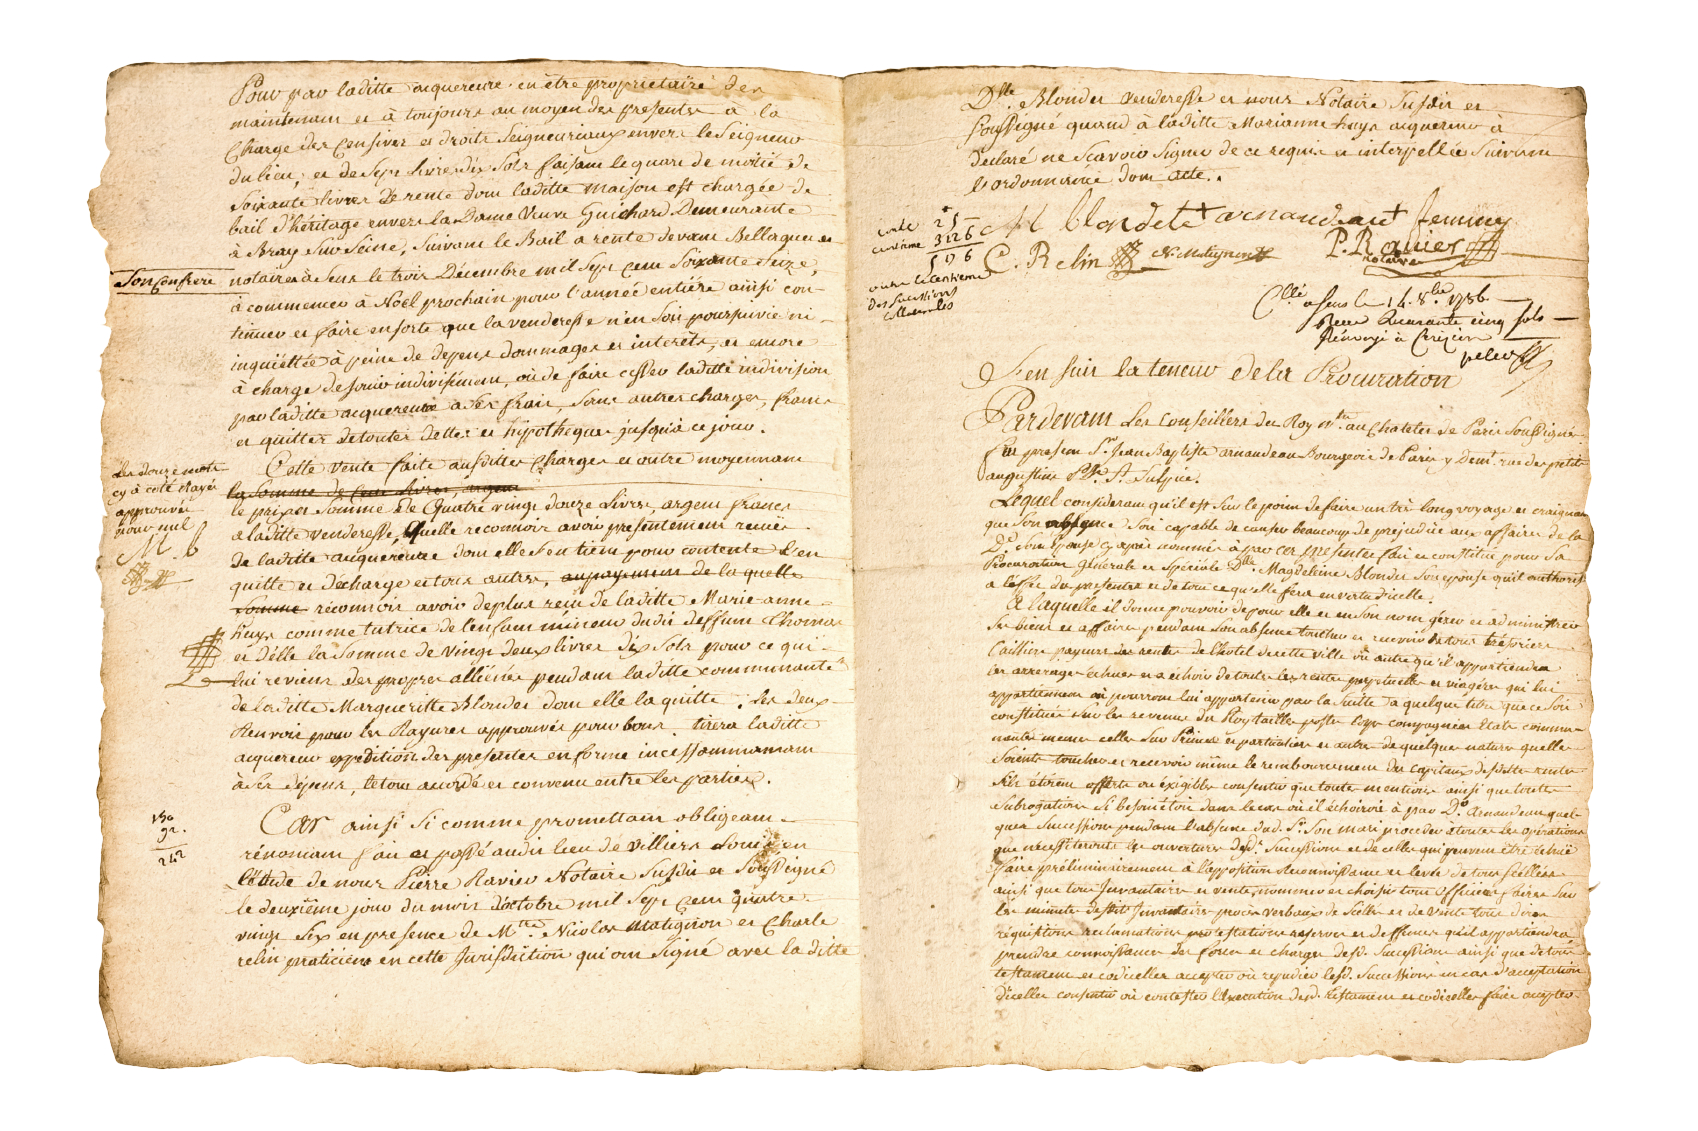 Pour par laditte acquereure en être proprietaire des
maintenant et à toujours au moyen des presentes à la
Charge des Censives et droits Seigneuriaux envers le Seigneur
du lieu, et de Sept livres dix Sols faisant le quart de moitié de
Soixante livres de rente dont laditte maison est chargée de
bail d'héritage envers la Dame Veuve Guichard Demeurante
à Bray Sur Seine, Suivant le Bail a rente devant Bellaguet et
Son Confrere
notaires à Sens le trois Décembre mil Sept Cent Soixante Seize,
à commencer à Noël prochain pour l'année entière ainsi con-
tinuer et faire ensorte que la venderesse n'en Soit poursuivie ni
inquiettée à peine de depens dommages et interêts, et encore
à charge de jouir indivisément, où de faire cesser laditte indivision
par laditte acquereure à Ses frais, Sans autres charges, franc
et quittes de toutes dettes et hipotheques jusqu'à ce jour.
Cette vente faite ausdittes Charges et outre moyennant
la Somme de Cent livres, argent
Les douze mots
cy à coté Rayés
approuvés
pour nul
M. B
le prix et Somme de Quatre vingt douze livres, argent francs
a laditte venderesse, laquelle reconnoit avoir presentement recuë
de laditte acquereure dont elle S'en tient pour contente l'en
quitte et décharge et tous autres, au payement de laquelle
Somme reconnoit avoir deplus reçu de laditte Marie-anne
huys comme tutrice de l'enfant mineur dudit deffunt Thomas
et d'élle la Somme de vingt deux livres dix Sols pour ce qui
lui revient des propres alliénés pendant laditte communauté
de laditte Margueritte Blondet dont elle la quitte. Les deux
Renvois pour les Rayures approuvés pour bons. tirera laditte
acquereur expédition des presentes en forme incessamment
à Ses dépens, le tout accordé et convenu entre les parties.
150
92.
242
Car ainsi Si comme promettant obligeant
rénonçant fait et passé audit lieu de Villiers Bonneux en
l'étude de nous Pierre Ravier Notaire Susdit et Soussigné
le deuxième jour du mois d'octobre mil Sept Cent Quatre
vingt Six en presence de Mtres Nicolas Matignon et Charle
relin praticiens en cette Jurisdiction qui ont Signé avec laditte
Dlle Blondet venderesse et nous Notaire Susdit et
Soussigné quand à laditte Marianne huys acquereur à
déclaré ne Scavoir Signer de ce requis et interpellée Suivant
l'ordonnance dont acte.
M blondelt arnaudeau femme
C. Relin N. Matignon P. Ravier
notaire
25
3126
576
outre le centieme
des Successions
collaterales
Cllé a Sens le 14. 8bre 1786
Recu Quarante cinq Sols
Renvoyé à Cerizier
S'en Suit la teneur de la Procuration
Pardevant Les Conseillers du Roy nres au Chatelet de Paris Soussignés
fut present Sr Jean Baptiste arnaudeau Bourgeois de Paris y demt. rue des petits
augustins Psse St Sulpice.
Lequel considerant qu'il est Sur le point de faire un très long voyage et craignant
que Son absence Soit capable de causer beaucoup de préjudice aux affaires de la
De. Son Epouse cy après nommée à par ces presentes fait et constitué pour Sa
Procuration générale et Spéciale Dlle. Magdeleine Blondet Son epouse qu'il authorise
a l'effet des presentes et de tout ce qu'elle fera en vertu d'icelle.
A laquelle il donne pouvoir de pour elle et en Son nom gérer et administrer
Ses biens et affaires pendant Son absence toucher et recevoir de tous trésoriers
Caissiers payeurs des rentes de l'hotel de cette ville ou autre qu'il appartiendra
les arrerages échus et à échoir de toutes les rentes perpetuelles et viagères qui lui
appartiennent où pourront lui appartenir par la Suitte à quelque titre que ce Soit
constituées Sur les revenus du Roy tailles postes Corps compagnies Etats commu-
nautés meme celles Sur Princes et particuliers et autres de quelque nature quelles
Soient toucher et recevoir même le remboursement des capitaux desdittes rentes
S'ils étoient offerts ou éxigibles consentir que toutes mentions ainsi que toutte
Subrogation Si besoin étoit dans le cas où il échoiroit à par De. Arnaudeau quel-
ques Successions pendant l'absence dud. Sr. Son mari proceder à toutes les opérations
que nécessiteroit les ouvertures desd. Successions et de celles qui peuvent être échuë
faire préliminairement à l'apposition Reconnoissance et levée de tous Scellées
ainsi que tous Inventaires et ventes, nommer et choisir tous Officiers, faire Sur
les minutes desdits Inventaires proces verbaux de Scellés et de Vente tous dires
réquisitions reclamations protestations réserves et deffenses qu'il appartiendra
prendre connoissance des forces et charges desd. Successions ainsi que de tous
testaments et codicilles accepter où repudier lesd. Successions en cas d'acceptation
d'icelles consentir où contester l'Execution desd. testament et codicilles faire accepter